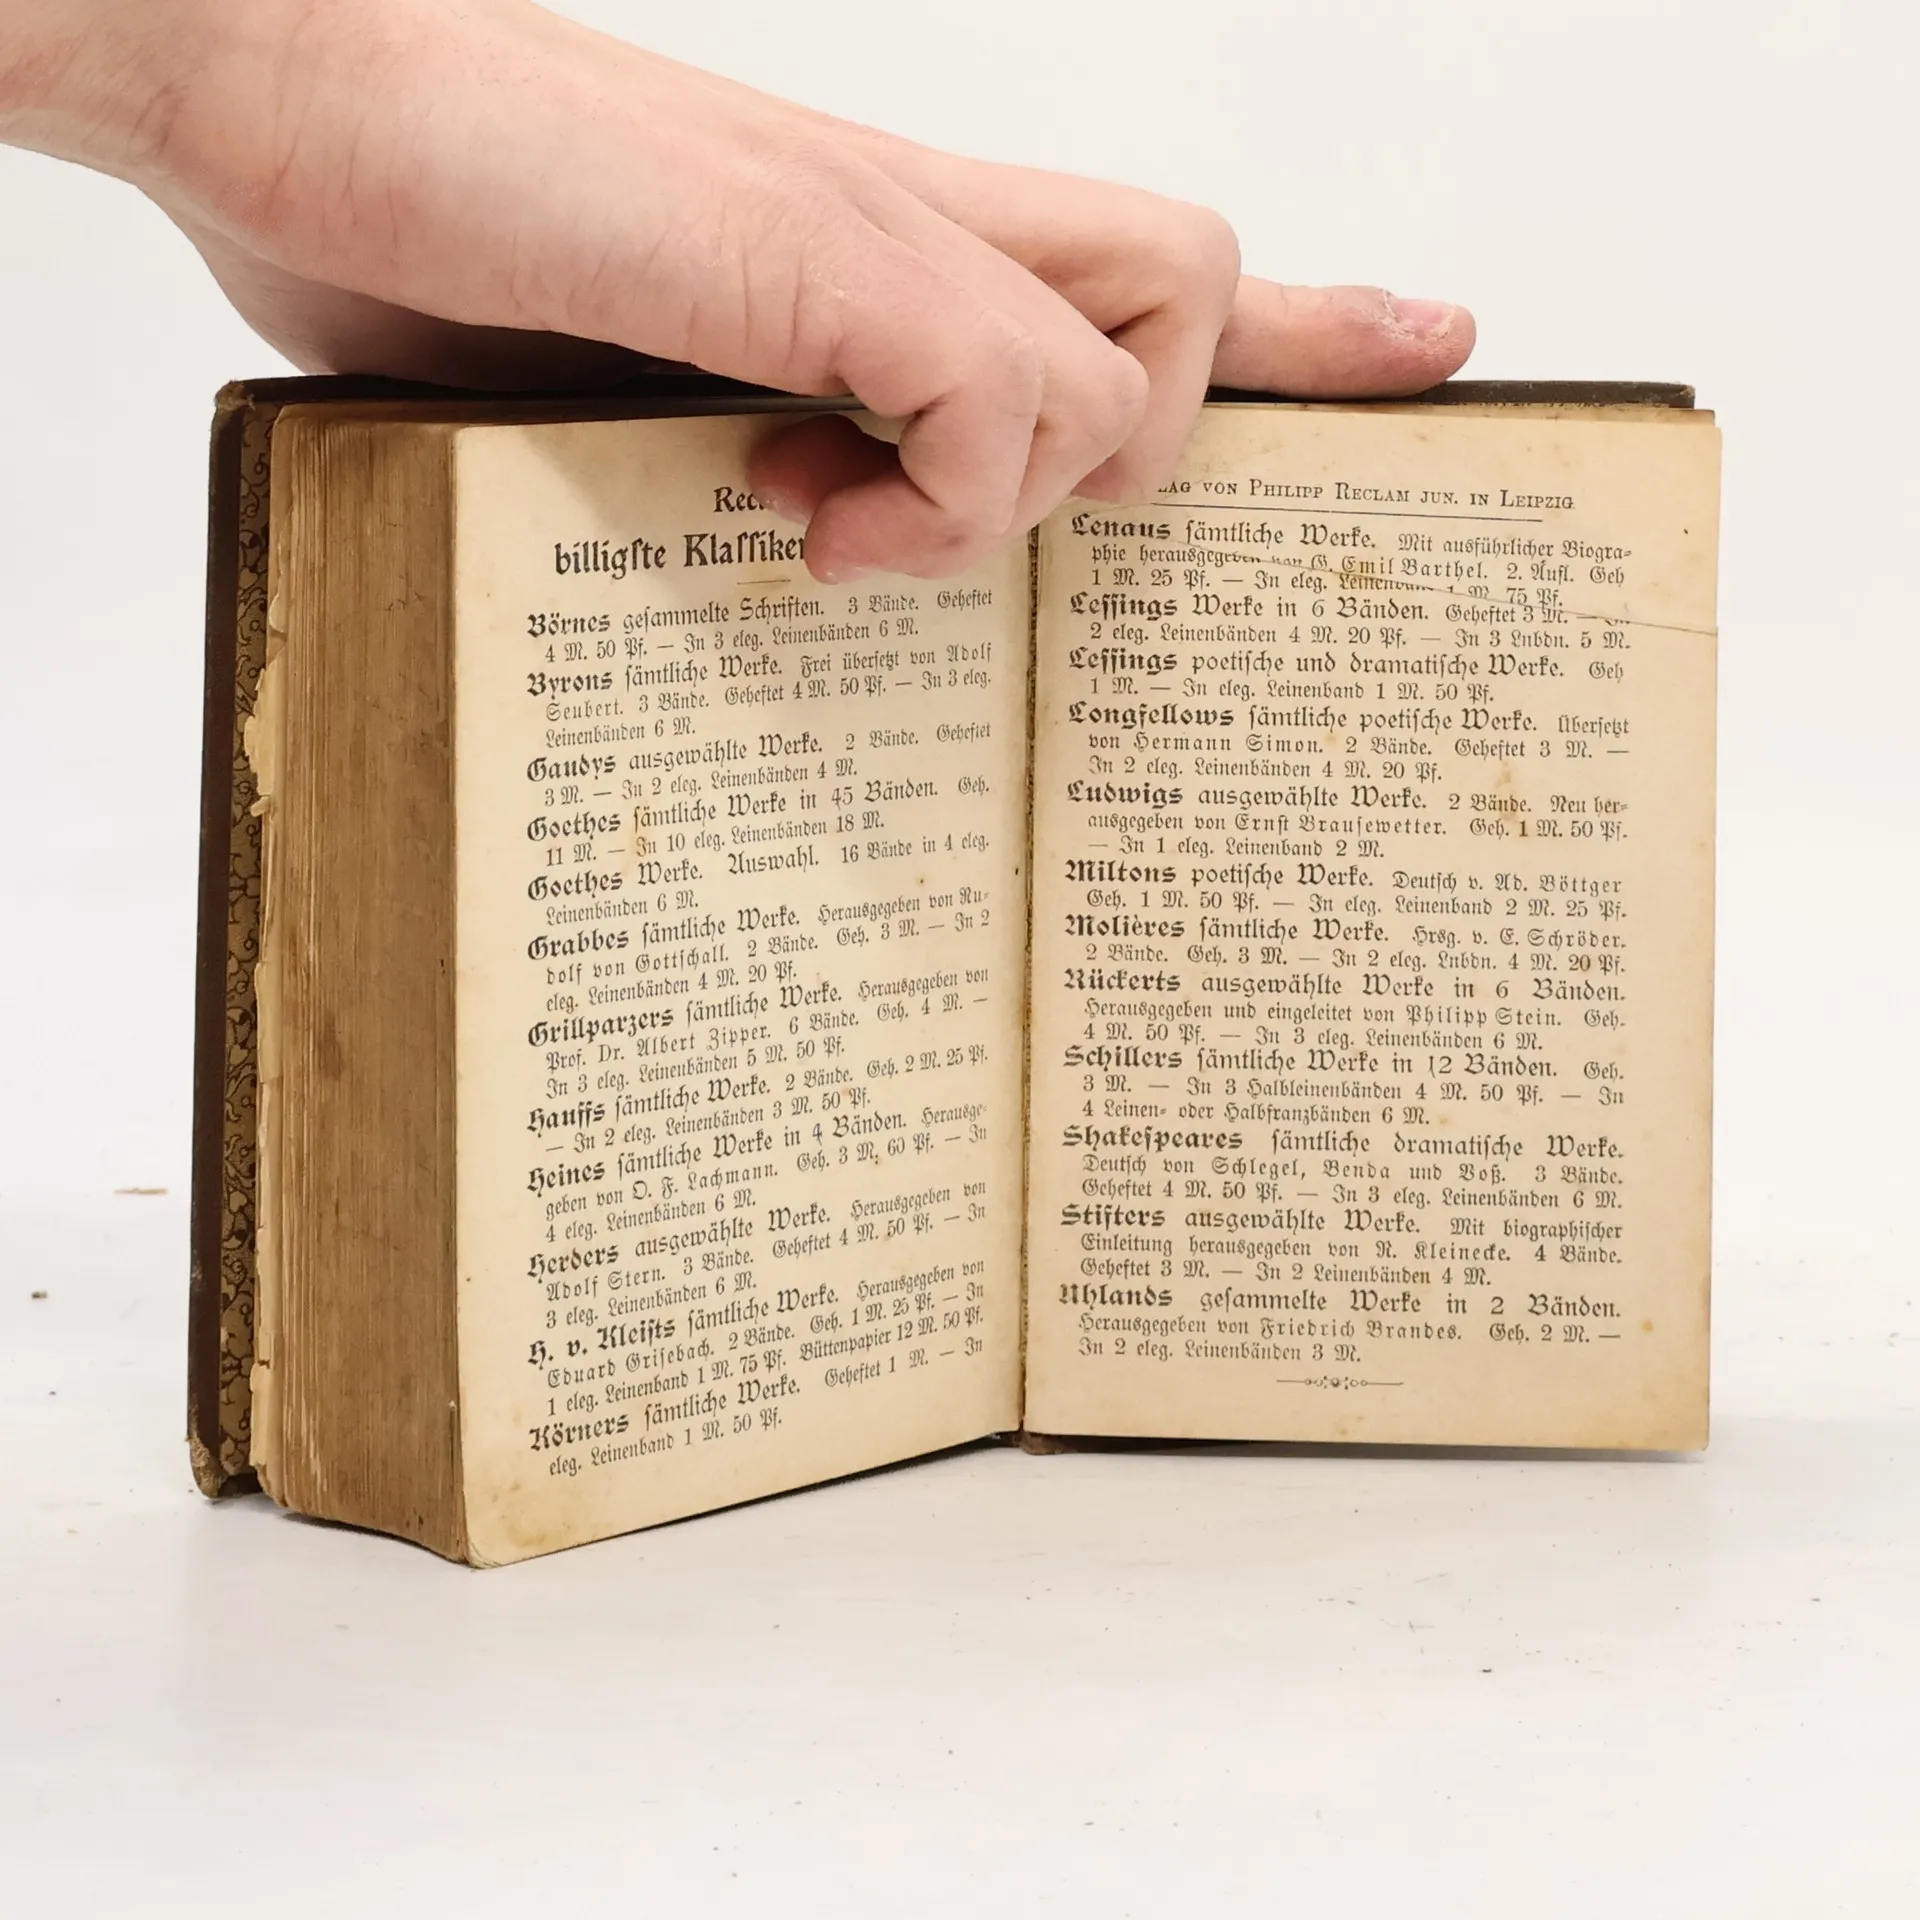 billigste Klassiker
Börnes gesammelte Schriften. 3 Bände. Geheftet
4 M. 50 Pf. — In 3 eleg. Leinenbänden 6 M.
Byrons sämtliche Werke. Frei übersetzt von Adolf
Seubert. 3 Bände. Geheftet 4 M. 50 Pf. — In 3 eleg.
Leinenbänden 6 M.
Gaudys ausgewählte Werke. 2 Bände. Geheftet
3 M. — In 2 eleg. Leinenbänden 4 M.
Goethes sämtliche Werke in 45 Bänden. Geh.
11 M. — In 10 eleg. Leinenbänden 18 M.
Goethes Werke. Auswahl. 16 Bände in 4 eleg.
Leinenbänden 6 M.
Grabbes sämtliche Werke. Herausgegeben von Ru-
dolf von Gottschall. 2 Bände. Geh. 3 M. — In 2
eleg. Leinenbänden 4 M. 20 Pf.
Grillparzers sämtliche Werke. Herausgegeben von
Prof. Dr. Albert Zipper. 6 Bände. Geh. 4 M. —
In 3 eleg. Leinenbänden 5 M. 50 Pf.
Hauffs sämtliche Werke. 2 Bände. Geh. 2 M. 25 Pf.
— In 2 eleg. Leinenbänden 3 M. 50 Pf.
Heines sämtliche Werke in 4 Bänden. Herausge-
geben von O. F. Lachmann. Geh. 3 M. 60 Pf. — In
4 eleg. Leinenbänden 6 M.
Herders ausgewählte Werke. Herausgegeben von
Adolf Stern. 3 Bände. Geheftet 4 M. 50 Pf. — In
3 eleg. Leinenbänden 6 M.
H. v. Kleists sämtliche Werke. Herausgegeben von
Eduard Grisebach. 2 Bände. Geh. 1 M. 25 Pf. — In
1 eleg. Leinenband 1 M. 75 Pf. Büttenpapier 12 M. 50 Pf.
Körners sämtliche Werke. Geheftet 1 M. — In
eleg. Leinenband 1 M. 50 Pf.
VON PHILIPP RECLAM JUN. IN LEIPZIG
Lenaus sämtliche Werke. Mit ausführlicher Biogra-
phie herausgegeben von G. Emil Barthel. 2. Aufl. Geh
1 M. 25 Pf. — In eleg. Leinenband 1 M. 75 Pf.
Lessings Werke in 6 Bänden. Geheftet 3 M. — In
2 eleg. Leinenbänden 4 M. 20 Pf. — In 3 Lnbdn. 5 M.
Lessings poetische und dramatische Werke. Geh
1 M. — In eleg. Leinenband 1 M. 50 Pf.
Longfellows sämtliche poetische Werke. Übersetzt
von Hermann Simon. 2 Bände. Geheftet 3 M. —
In 2 eleg. Leinenbänden 4 M. 20 Pf.
Ludwigs ausgewählte Werke. 2 Bände. Neu her-
ausgegeben von Ernst Brausewetter. Geh. 1 M. 50 Pf.
— In 1 eleg. Leinenband 2 M.
Miltons poetische Werke. Deutsch v. Ad. Böttger
Geh. 1 M. 50 Pf. — In eleg. Leinenband 2 M. 25 Pf.
Molières sämtliche Werke. Hrsg. v. E. Schröder.
2 Bände. Geh. 3 M. — In 2 eleg. Lnbdn. 4 M. 20 Pf.
Rückerts ausgewählte Werke in 6 Bänden.
Herausgegeben und eingeleitet von Philipp Stein. Geh.
4 M. 50 Pf. — In 3 eleg. Leinenbänden 6 M.
Schillers sämtliche Werke in 12 Bänden. Geh.
3 M. — In 3 Halbleinenbänden 4 M. 50 Pf. — In
4 Leinen- oder Halbfranzbänden 6 M.
Shakespeares sämtliche dramatische Werke.
Deutsch von Schlegel, Benda und Voß. 3 Bände.
Geheftet 4 M. 50 Pf. — In 3 eleg. Leinenbänden 6 M.
Stifters ausgewählte Werke. Mit biographischer
Einleitung herausgegeben von R. Kleinecke. 4 Bände.
Geheftet 3 M. — In 2 Leinenbänden 4 M.
Uhlands gesammelte Werke in 2 Bänden.
Herausgegeben von Friedrich Brandes. Geh. 2 M. —
In 2 eleg. Leinenbänden 3 M.